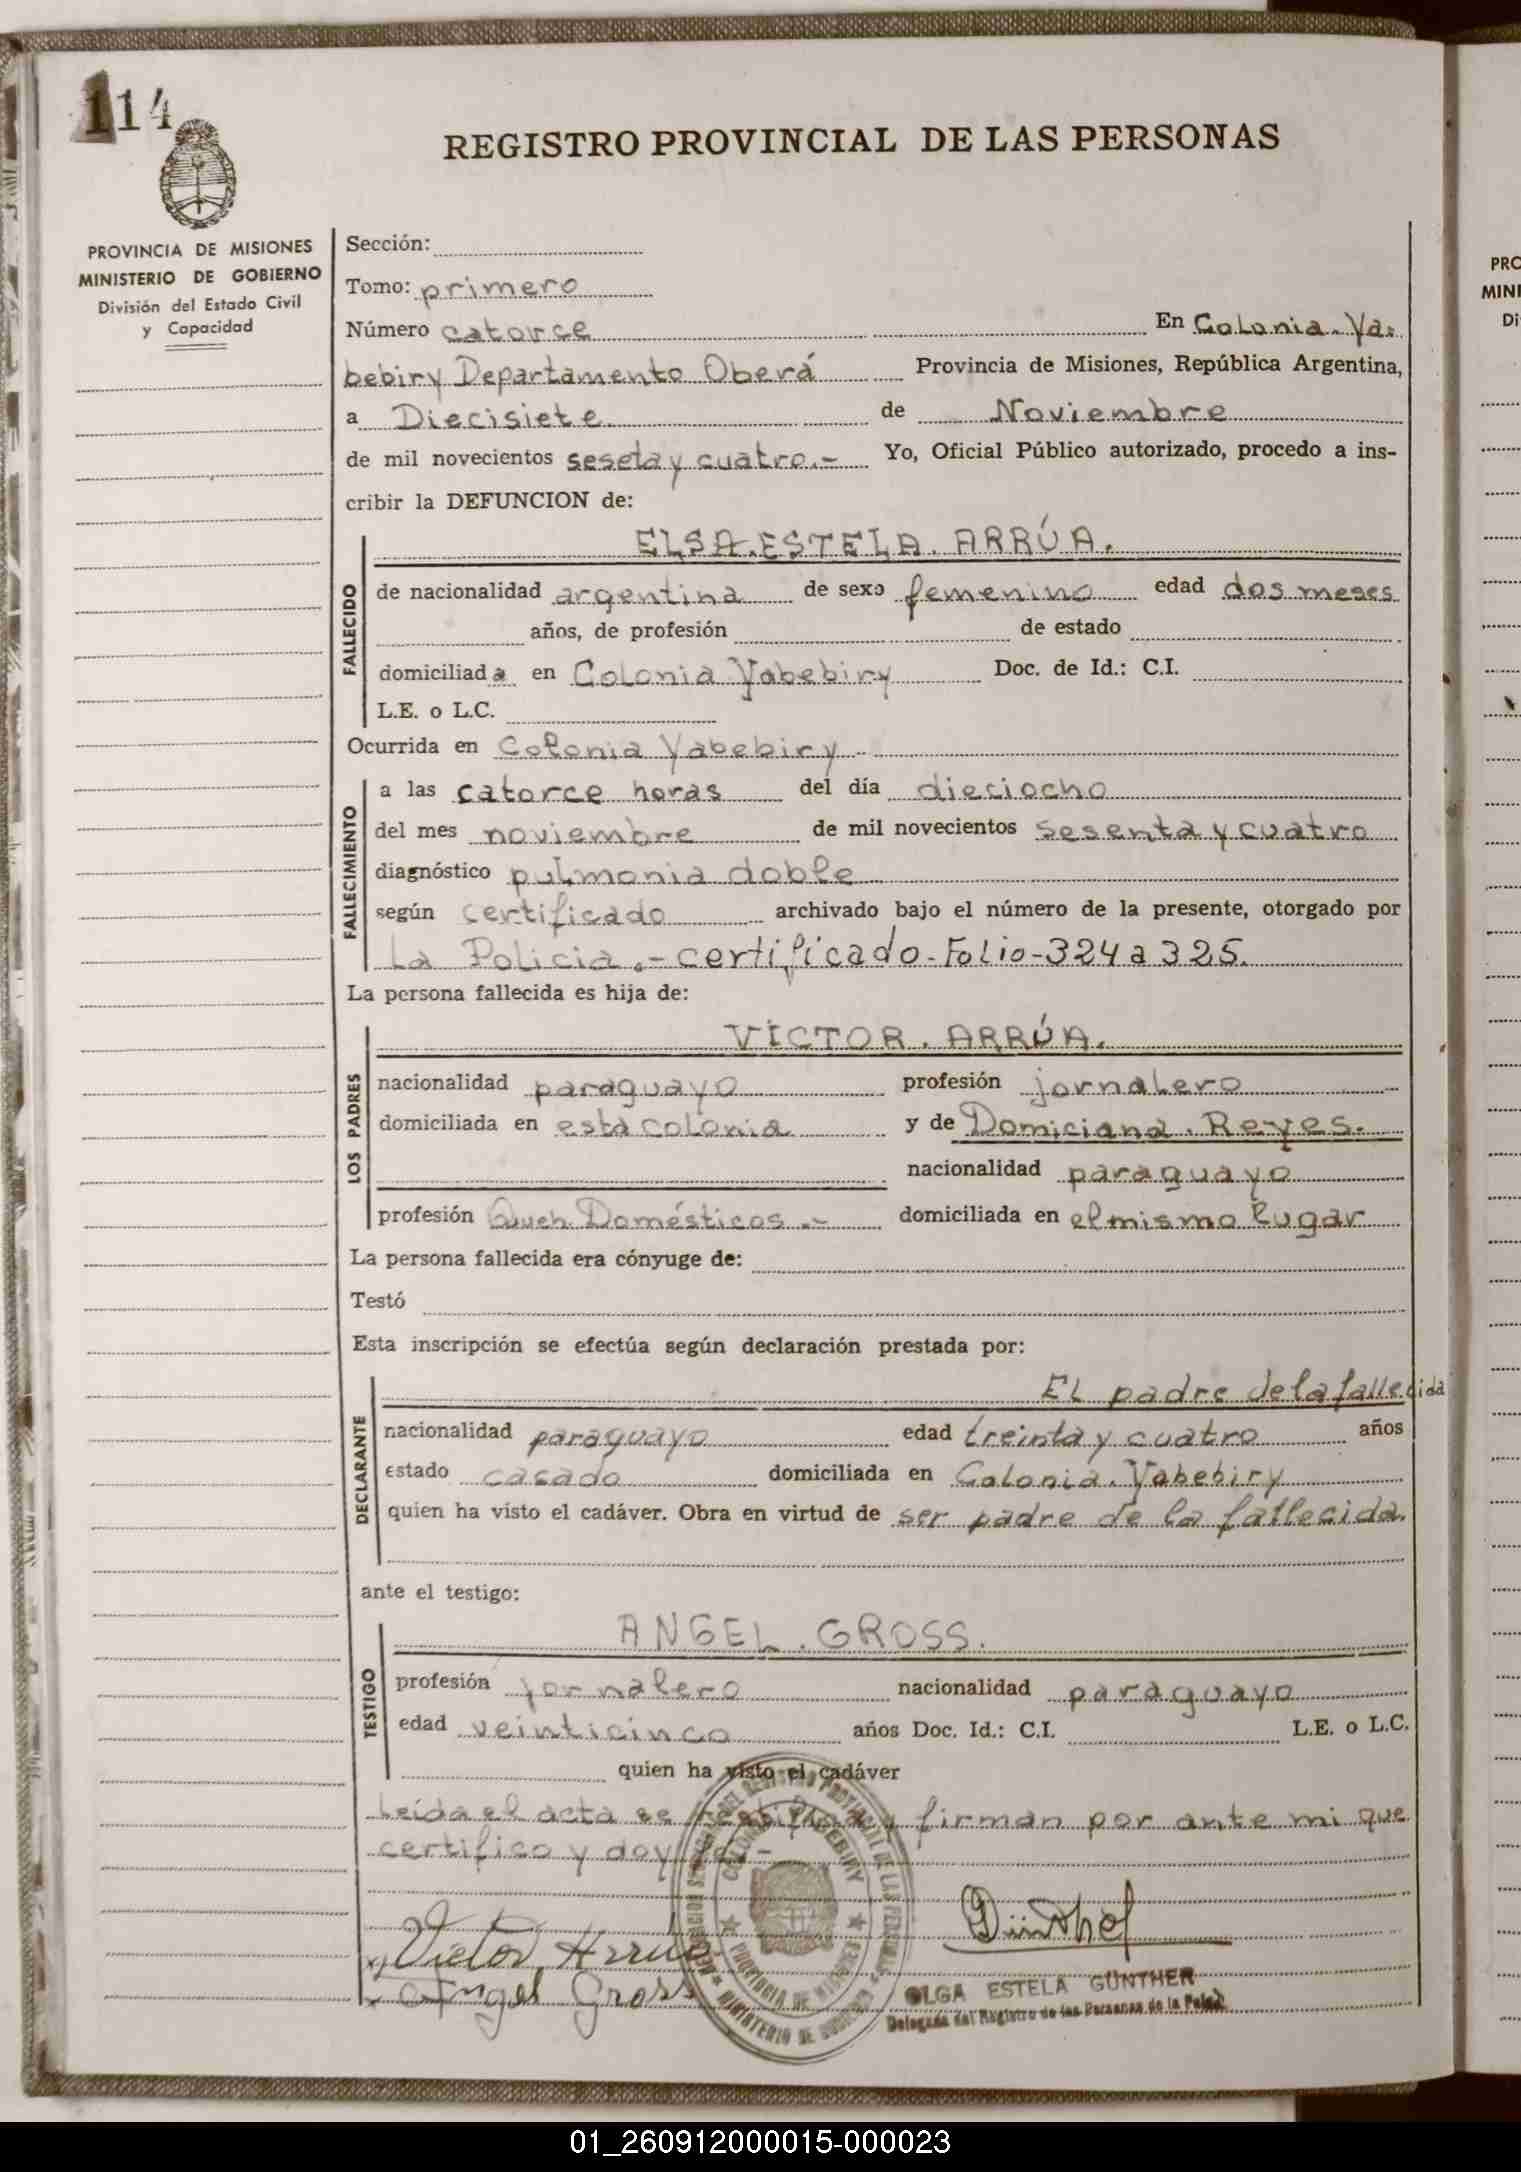 114
REGISTRO PROVINCIAL DE LAS PERSONAS
PROVINCIA DE MISIONES
MINISTERIO DE GOBIERNO
División del Estado Civil
y Capacidad
Sección:
Tomo: primero
Número catorce En Colonia Ya-
bebiry Departamento Oberá Provincia de Misiones, República Argentina,
a Diecisiete de Noviembre
de mil novecientos seseta y cuatro.- Yo, Oficial Público autorizado, procedo a ins-
cribir la DEFUNCION de:
FALLECIDO
ELSA.ESTELA. ARRÚA.
de nacionalidad argentina de sexo femenino edad dos meses
años, de profesión de estado
domiciliada en Colonia Yabebiry Doc. de Id.: C.I.
L.E. o L.C.
Ocurrida en Colonia Yabebiry.-
FALLECIMIENTO
a las catorce horas del día dieciocho
del mes noviembre de mil novecientos sesenta y cuatro
diagnóstico pulmonia doble
según certificado archivado bajo el número de la presente, otorgado por
La Policia.- certificado-Folio-324 a 325.
La persona fallecida es hija de:
LOS PADRES
VICTOR. ARRÚA.
nacionalidad paraguayo profesión jornalero
domiciliada en esta colonia y de Domiciana. Reyes.
nacionalidad paraguayo
profesión Domésticos.- domiciliada en el mismo lugar
La persona fallecida era cónyuge de:
Testó
Esta inscripción se efectúa según declaración prestada por:
DECLARANTE
EL padre de la fallecida
nacionalidad paraguayo edad treinta y cuatro años
estado casado domiciliada en Colonia. Yabebiry
quien ha visto el cadáver. Obra en virtud de ser padre de la fallecida.
ante el testigo:
TESTIGO
ANGEL. GROSS.
profesión jornalero nacionalidad paraguayo
edad veinticinco años Doc. Id.: C.I. L.E. o L.C.
quien ha visto el cadáver
Leída el acta se y firman por ante mi que
certifico y doy
Victor Arrúa
Angel Gross
COLONIA YABEBIRY
PROVINCIA DE MISIONES
MINISTERIO DE GOBIERNO
OLGA ESTELA GÜNTHER
Delegada del Registro de las Personas de la
PRO
MINI
Di
01_260912000015-000023